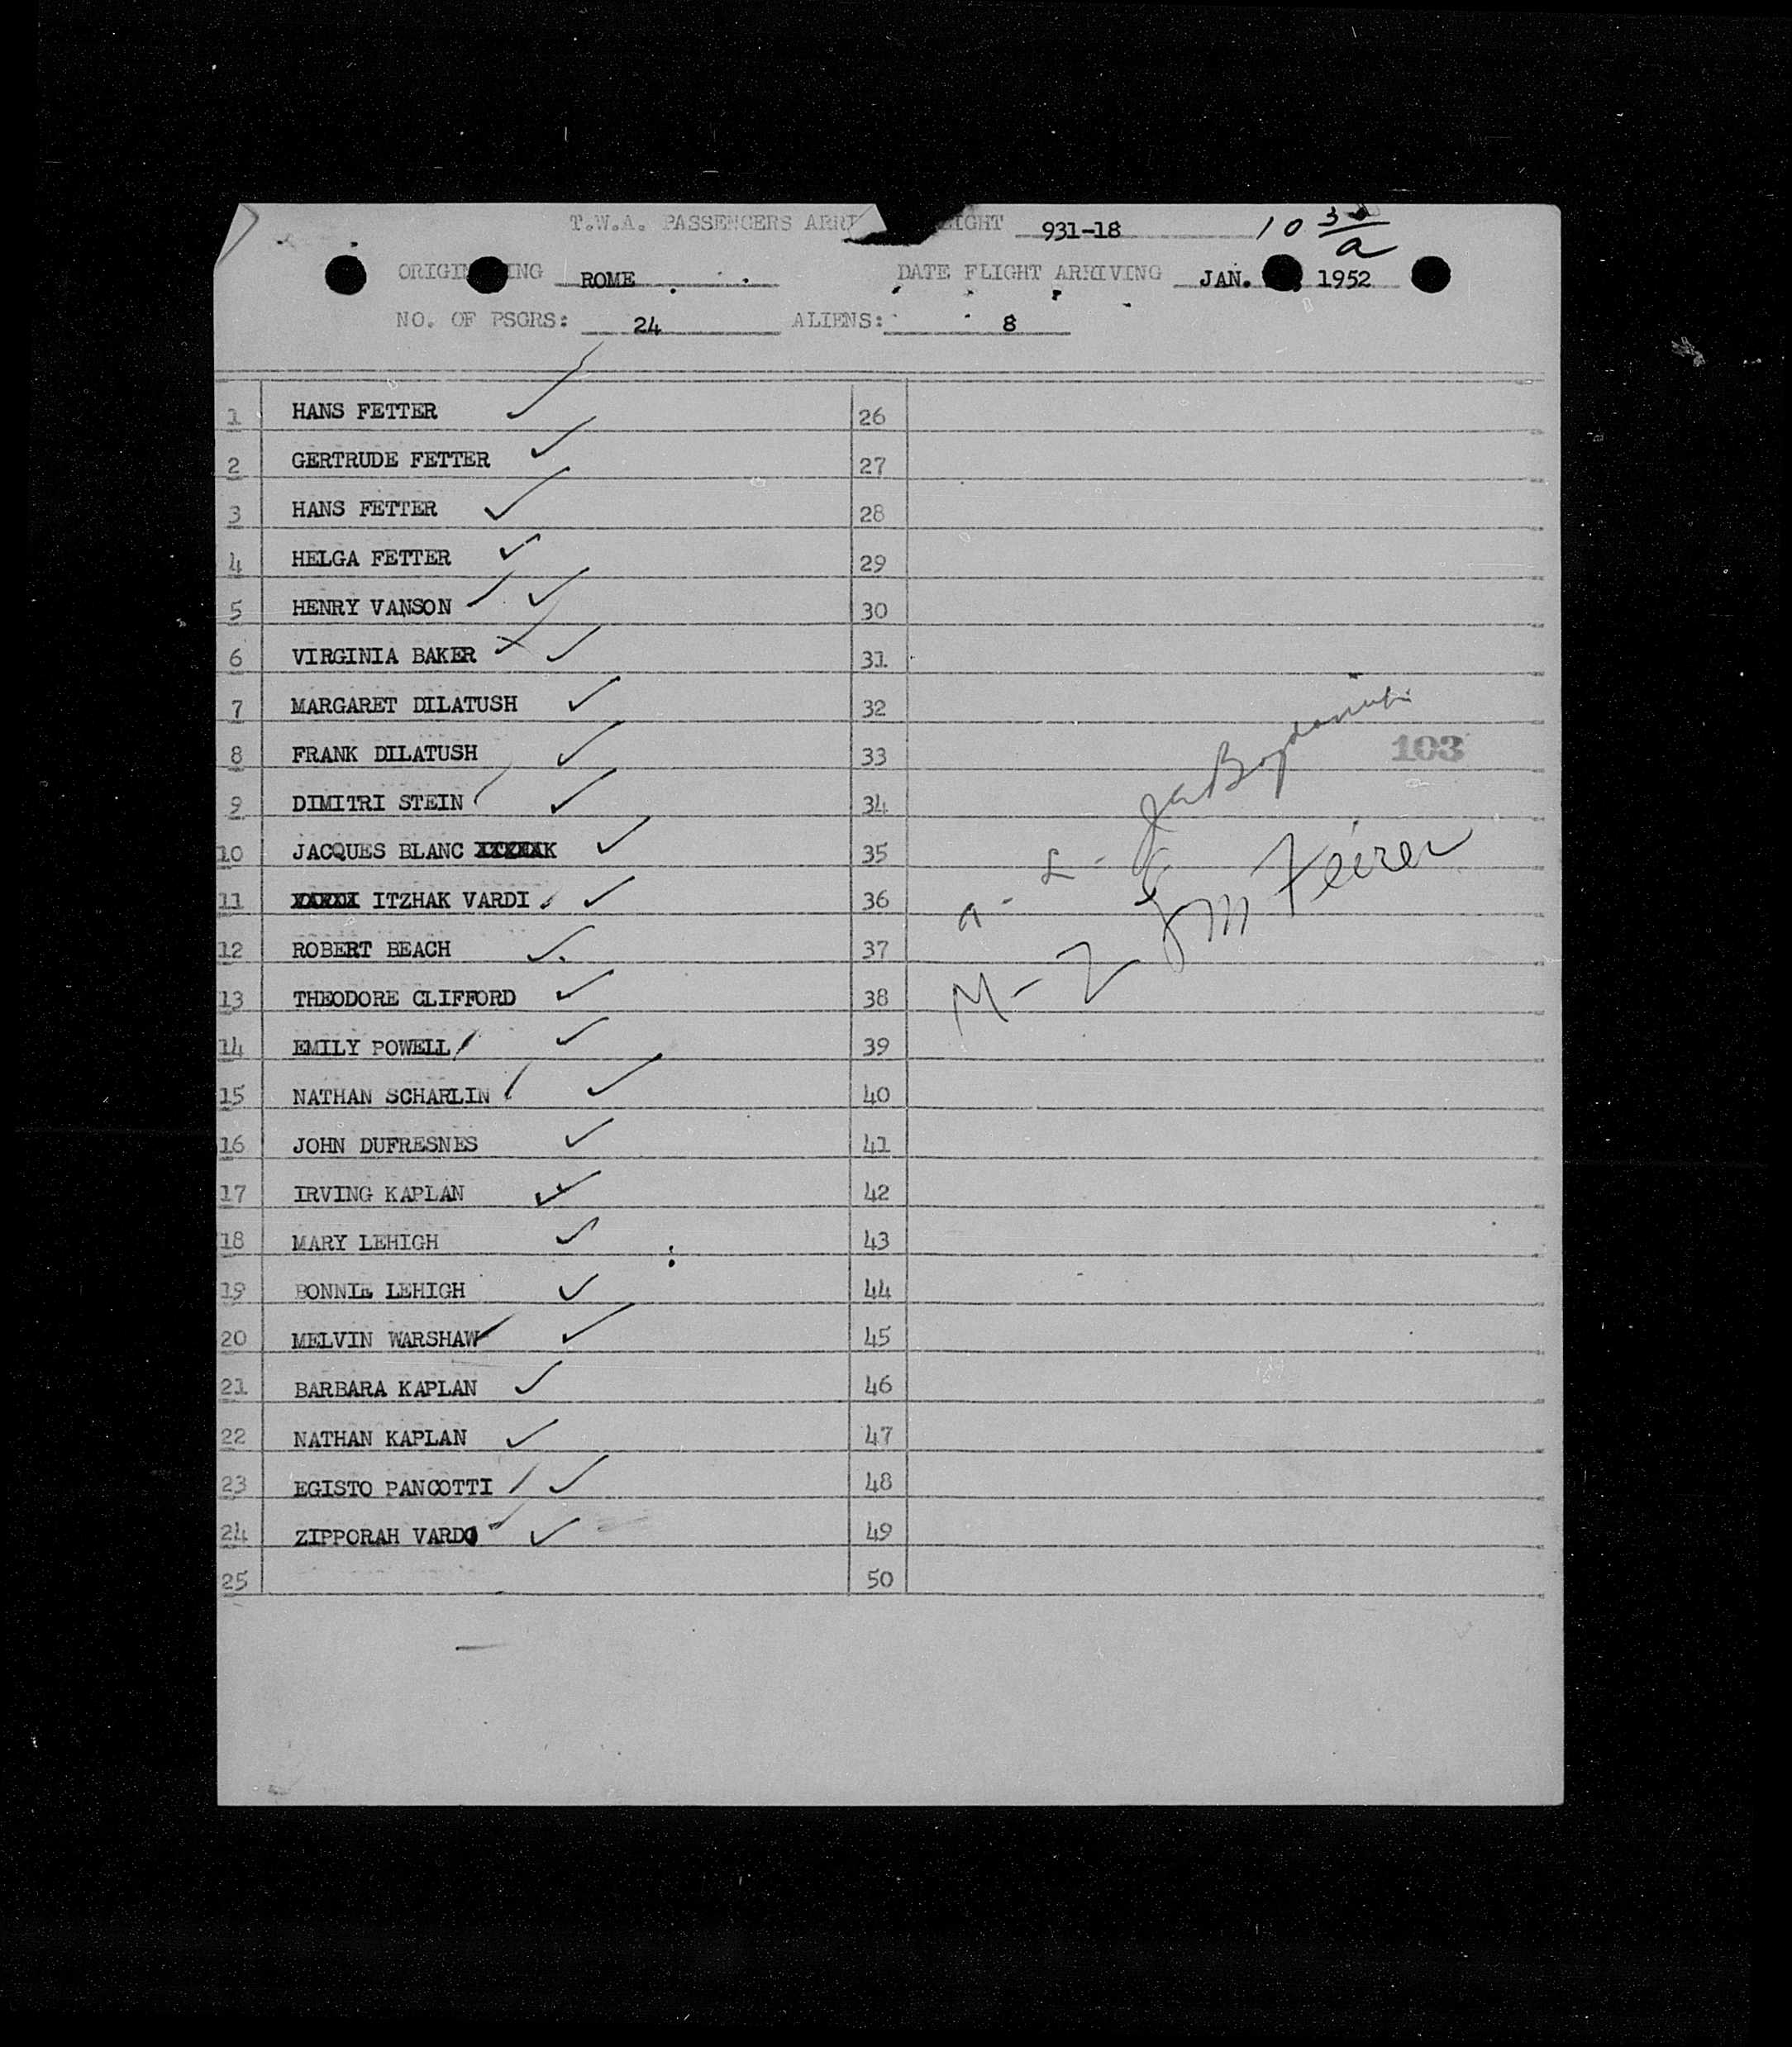 T.W.A. PASSENGERS ARRI IGHT 931-18 10 30/a
ORIGIN ING ROME DATE FLIGHT ARRIVING JAN. 1952
NO. OF PSGRS: 24 ALIENS: 8
1 HANS FETTER 26
2 GERTRUDE FETTER 27
3 HANS FETTER 28
4 HELGA FETTER 29
5 HENRY VANSON 30
6 VIRGINIA BAKER 31
7 MARGARET DILATUSH 32
8 FRANK DILATUSH 33 103
9 DIMITRI STEIN 34
10 JACQUES BLANC 35
11 ITZHAK VARDI 36
12 ROBERT BEACH 37
13 THEODORE CLIFFORD 38
14 EMILY POWELL 39
15 NATHAN SCHARLIN 40
16 JOHN DUFRESNES 41
17 IRVING KAPLAN 42
18 MARY LEHIGH 43
19 BONNIE LEHIGH 44
20 MELVIN WARSHAW 45
21 BARBARA KAPLAN 46
22 NATHAN KAPLAN 47
23 EGISTO PANCOTTI 48
24 ZIPPORAH VARDI 49
25 50
a - L
M - Z